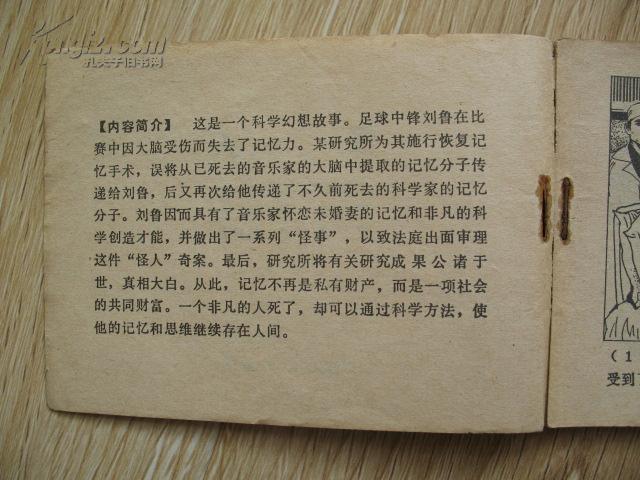 Kongfz.com
孔夫子旧书网
【内容简介】 这是一个科学幻想故事。足球中锋刘鲁在比
赛中因大脑受伤而失去了记忆力。某研究所为其施行恢复记
忆手术，误将从已死去的音乐家的大脑中提取的记忆分子传
递给刘鲁，后又再次给他传递了不久前死去的科学家的记忆
分子。刘鲁因而具有了音乐家怀恋未婚妻的记忆和非凡的科
学创造才能，并做出了一系列“怪事”，以致法庭出面审理
这件“怪人”奇案。最后，研究所将有关研究成果公诸于
世，真相大白。从此，记忆不再是私有财产，而是一项社会
的共同财富。一个非凡的人死了，却可以通过科学方法，使
他的记忆和思维继续存在人间。
（1
受到